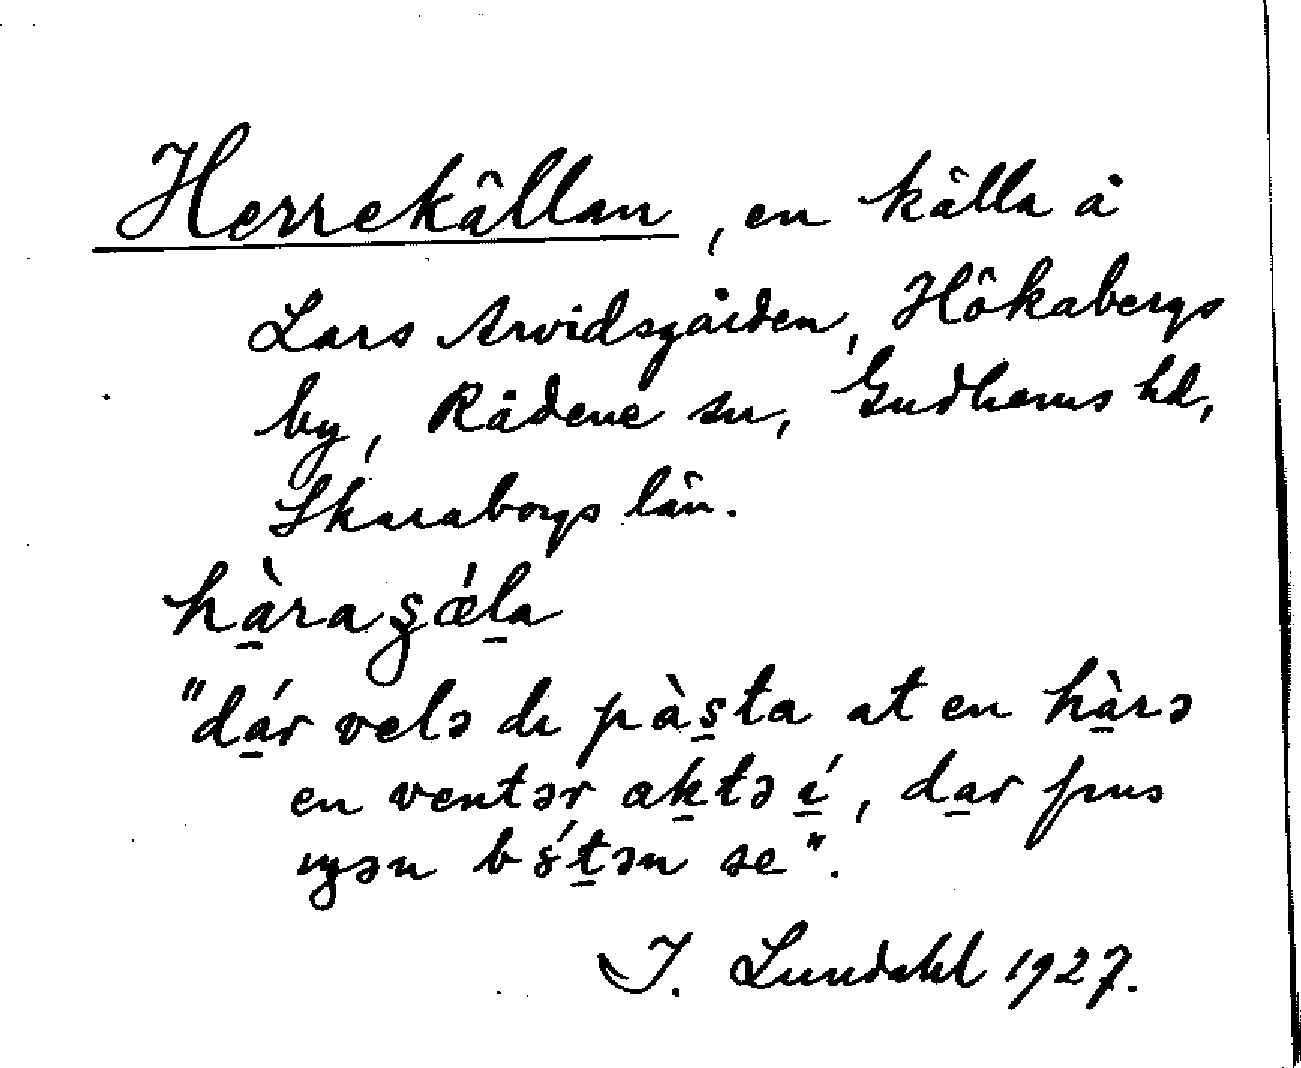 Herrekällan, en källa å
Lars Arvidsgården, Hökabergs
by, Rådene sn, Gudhems hd,
Skaraborgs län.
hàra ʂǽla
"dár velə dı pàsta at en hàrə
en ventər aktə í, dar fıns
ıŋən bótən se".
I. Lundahl 1927.